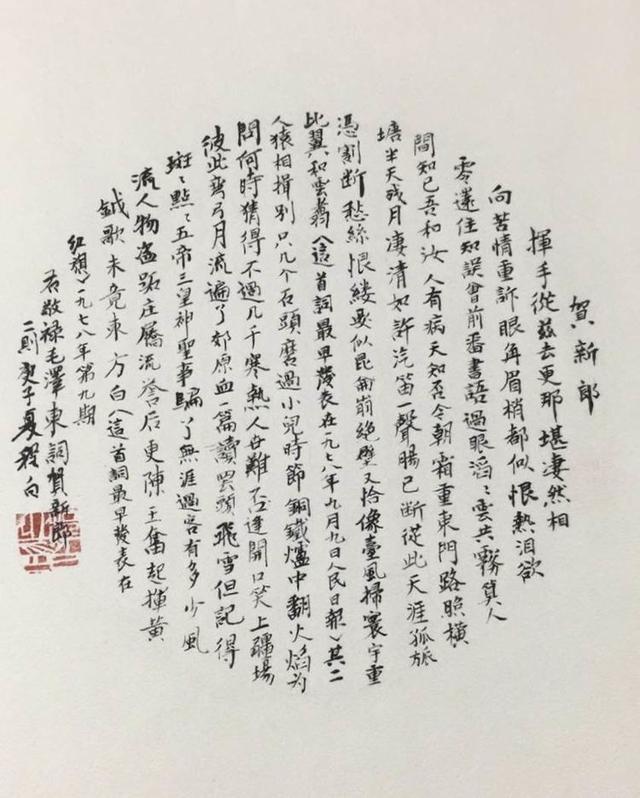 賀新郎
揮手從兹去更那堪凄然相
向苦情重訴眼角眉梢都似恨熱泪欲
零還住知誤會前番書語過眼滔々雲共霧算人
間知己吾和汝人有病天知否今朝霜重東門路照橫
塘半天残月凄清如許汽笛一聲腸已斷從此天涯孤旅
憑割斷愁絲恨縷要似昆崙崩絶壁又恰像臺風掃寰宇重
比翼和雲翥（這首詞最早發表在一九七八年九月九日人民日報）其二
人猿相揖别只几个石頭磨過小兒時節銅鐵爐中翻火焰为
問何時猜得不過几千寒熱人世難逢開口笑上疆場
彼此彎弓月流遍了郊原血一篇讀罷頭飛雪但記得
斑々點々五帝三皇神聖事騙了無涯過客有多少風
流人物盗跖庄屩流誉后更陳王奮起揮黄
鉞歌未竟東方白（這首詞最早發表在
红旗）一九七八年第九期
右敬禄毛澤東詞賀新郎
二則庚子夏程向